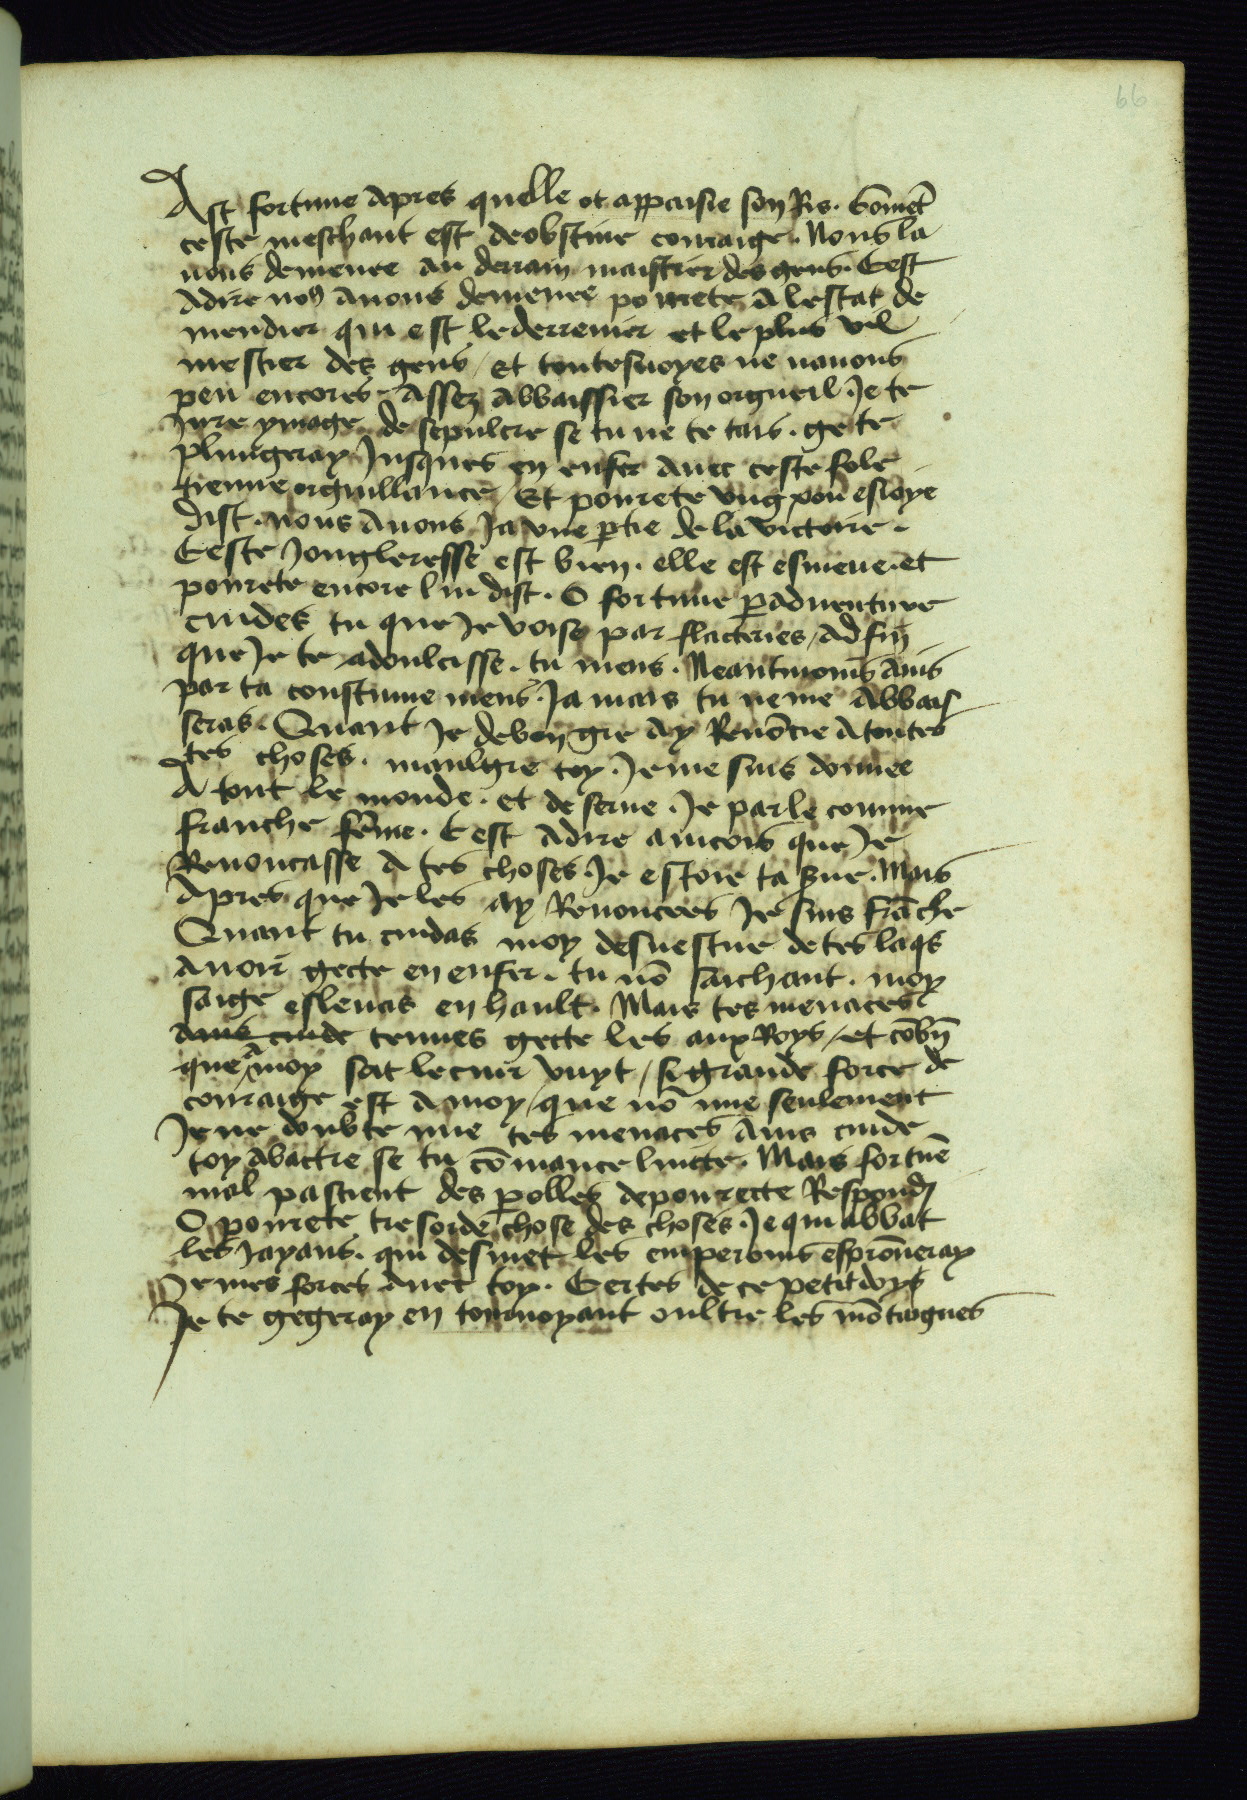 66
Ast fortune apres quelle ot appaisie son Ris. Comēt
ceste meschant est de obstine couraige. Nous la
uous demenee au derrain maistier des gens. Cest
adire no9 auons demenee pourete a lestat de
mendier qui est le derrenier et le plus vil
mestier des gens / Et toutesuoyes ne nauons
peu encores assez abbaissier son orgueil. Je te
Jure ymage de sepulcre se tu ne te tais. ge te
plungeray Jusques en enfer auec ceste fole
tienne orguillance / Et pourete vng pou esioye
dist. nous auons Ja vne ptie de la victoire.
Ceste Jongleresse est bien. elle est esmeue. et
pourete encore lui dist. O fortune paduenture
cuides tu que Je voise par flateries / ad fin
que Je te adoulcisse. tu mens. Neantmoins ains
par ta coustume mens. Ja mais tu ne me abbais
seras. Quant Je de bon gre ay Renōcie a toutes
tes choses. maulgre toy. Je me suis donnee
A tout le monde. et de serue. Je parle comme
franche fēme. Cest adire aincois que Je
Renoncasse a tes choses. Je estoie ta sue. Mais
Apres que Je les ay Renoncees Je suis frāche
Quant tu cuidas moy desuestue de tes laqs
auoir gecte en enfer. tu nō saichant. moy
saige esleuas en hault. Mais tes menaces
ains cuide tennes gecte les aux Roys / et cōbn̄
que a moy soit le cuir vuyt / si grande force de
couraige est a moy / que nō mie seulement
Je ne doubte mie tes menaces ains cuide
toy abactre se tu cōmance luicte. Mais fortūe
mal pascient des polles de pourecte Respond
O pourete tresorde chose des choses. Je qui abbat
les Jayans. qui desmet les empereurs esprouueray
Je mes forces auec toy. Certes de ce petit doys
Je te gegeray en tournoyant oultre les mōtaignes